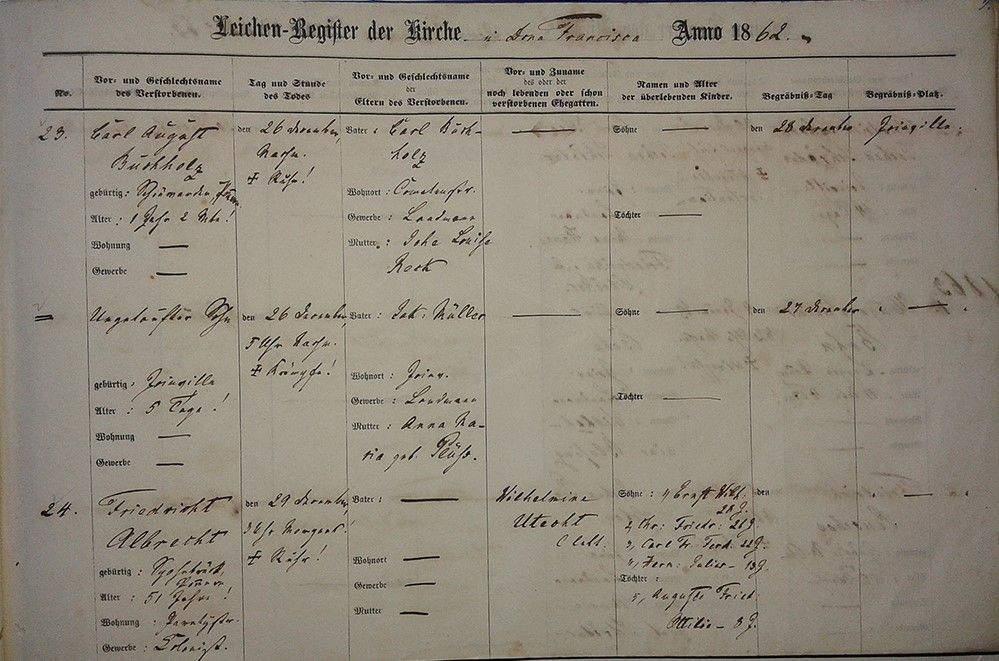 Leichen-Register der Kirche in Dona Francisca Anno 1862.
No.
Vor- und Geschlechtsname
des Verstorbenen.
Tag und Stunde
des Todes
Vor- und Geschlechtsname
der
Eltern des Verstorbenen.
Vor- und Zuname
des oder der
noch lebenden oder schon
verstorbenen Ehegatten.
Namen und Alter
der überlebenden Kinder.
Begräbniß-Tag
Begräbniß-Platz.
23.
Carl August
Buchholz
gebürtig:
Alter: 1 Jahr 2 Mte!
Wohnung —
Gewerbe —
den 26 December,
Nachm.
† Ruhr!
Vater: Carl Buch-
holz
Wohnort:
Gewerbe: Landmann
Mutter: Joha Louise
Rack
—
Söhne —
Töchter —
den 28 December
Joinville.
Ungetaufter Sohn
gebürtig: Joinville
Alter: 5 Tage!
Wohnung —
Gewerbe —
den 26 December,
5 Uhr Nachm.
† Krämpfe!
Vater: Jak: Müller
Wohnort: Joinv.
Gewerbe: Landmann
Mutter: Anna Ma-
ria geb. Plüss.
—
Söhne —
Töchter —
den 27 December
" — "
24.
Friedricht
Albrecht
gebürtig:
Pommern
Alter: 51 Jahre!
Wohnung:
Gewerbe: Colonist.
den 29 December,
3 Uhr Morgens!
† Ruhr!
Vater: —
Wohnort —
Gewerbe —
Mutter —
Wilhelmine
Utecht
Söhne: 1, Ernst Wilh.
28 J.
2, Chr: Friedr: 26 J.
3, Carl Fr. Ferd. 22 J.
4, Herm: Julius — 13 J.
Töchter:
5, Auguste Fried
Ottilie — 8 J.
den
" — "